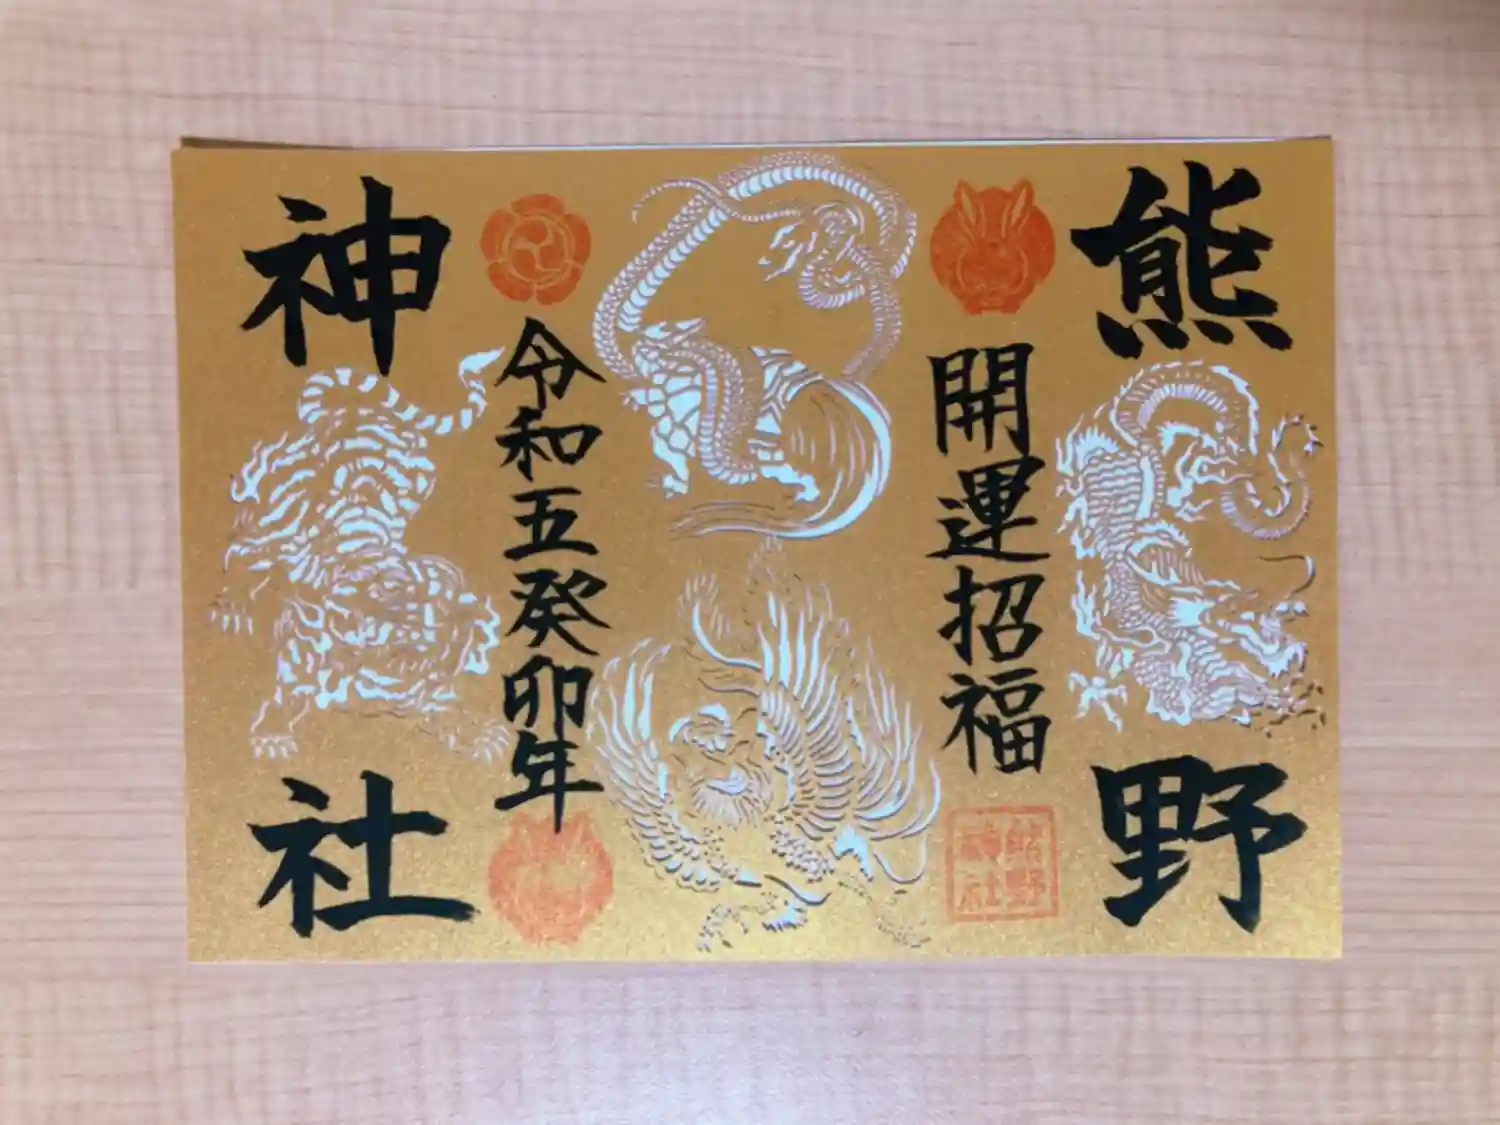 熊野
開運招福
令和五癸卯年
神社
熊野
神社